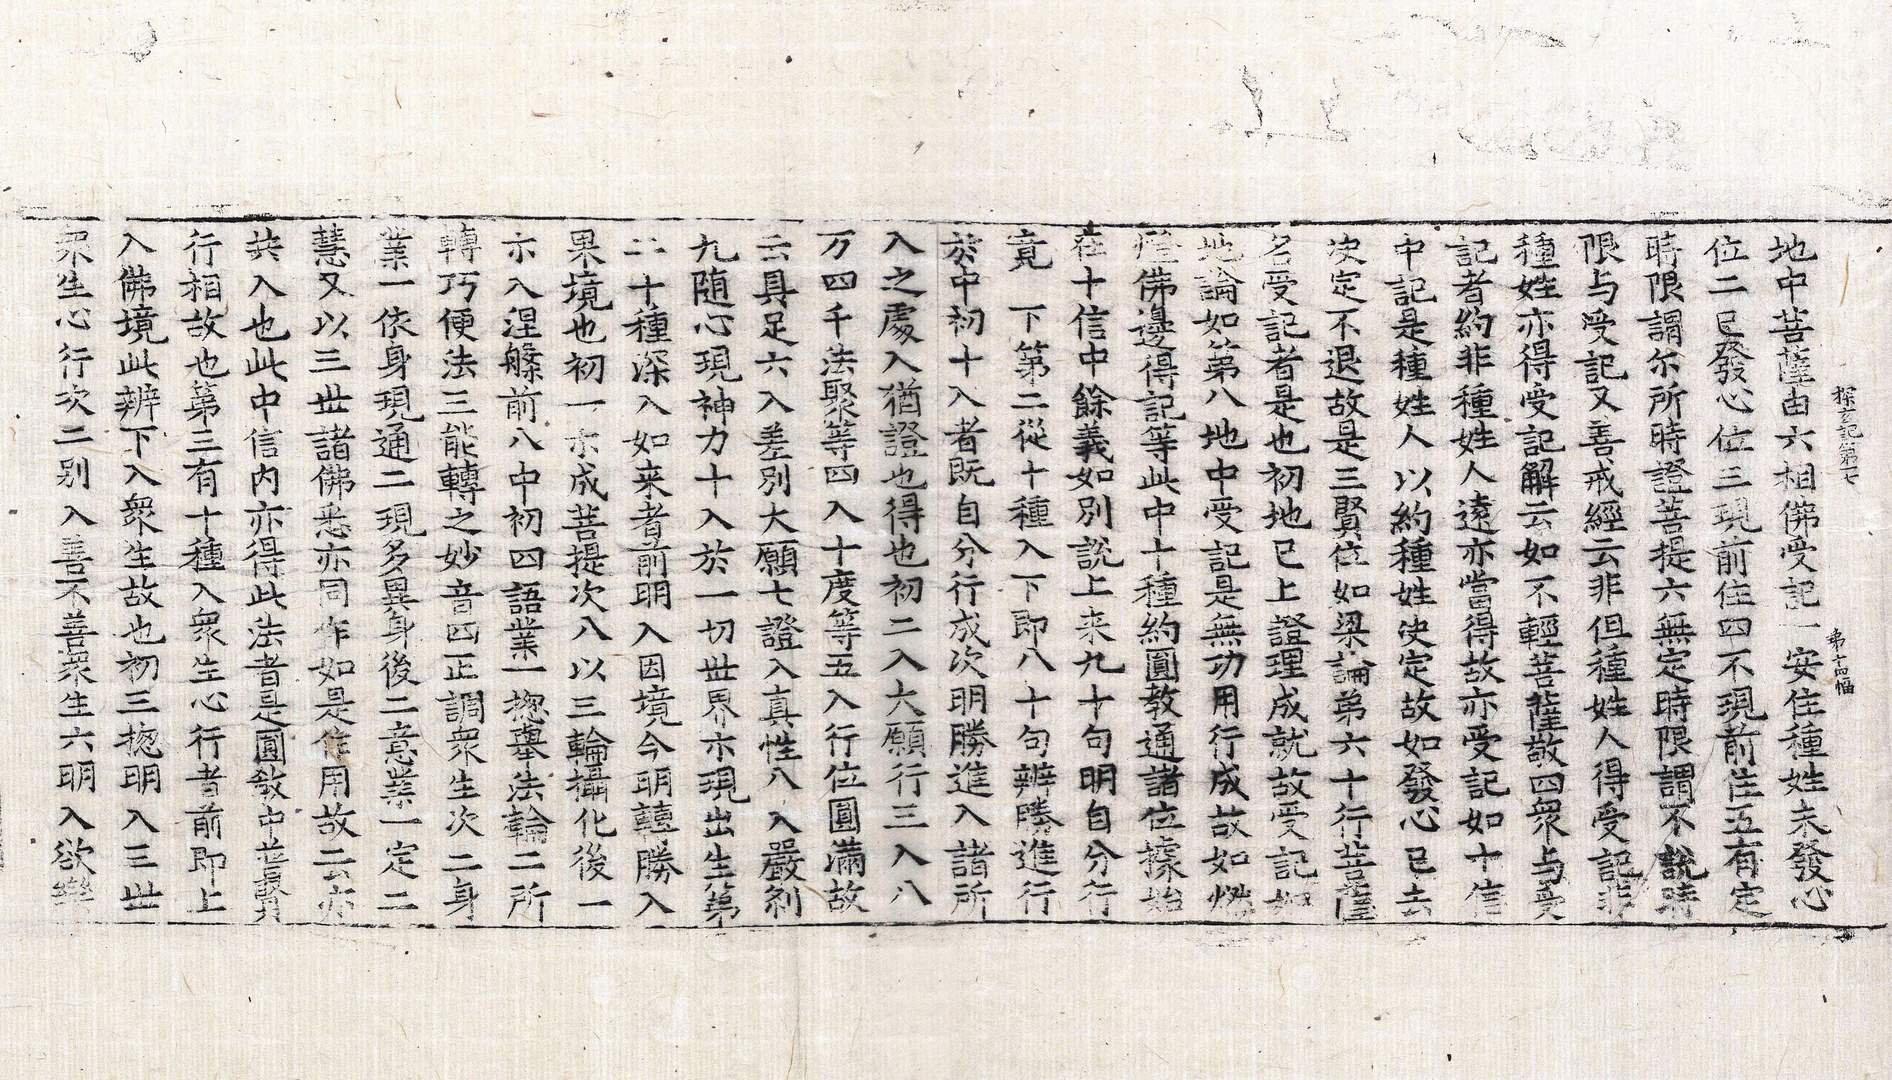 探玄記第十七
第十四幅
地中菩薩由六相佛受記一安住種姓未發心
位二已發心位三現前住四不現前住五有定
時限謂尔所時證菩提六無定時限謂不說時
限与受記又善戒經云非但種姓人得受記非
種姓亦得受記解云如不輕菩薩敬四衆与受
記者約非種姓人遠亦當得故亦受記如十信
中記是種姓人以約種姓決定故如發心已去
決定不退故是三賢位如梁論第六十行菩薩
名受記者是也初地已上證理成就故受記如
地論如第八地中受記是無功用行成故如燃
燈佛邊得記等此中十種約圓教通諸位據始
在十信中餘義如別說上来九十句明自分行
竟 下第二從十種入下即八十句辨勝進行
於中初十入者既自分行成次明勝進入諸所
入之處入猶證也得也初二入大願行三入八
万四千法聚等四入十度等五入行位圓滿故
云具足六入差別大願七證入真性八入嚴刹
九随心現神力十入於一切世界亦現出生第
二十種深入如来者前明入因境今明轉勝入
果境也初一示成菩提次八以三輪攝化後一
示入涅槃前八中初四語業一揔舉法輪二所
轉巧便法三能轉之妙音四正調衆生次二身
業一依身現通二現多異身後二意業一定二
慧又以三世諸佛悉亦同作如是作用故云亦
共入也此中信内亦得此法者是圓教中普賢
行相故也第三有十種入衆生心行者前即上
入佛境此辨下入衆生故也初三揔明入三世
衆生心行次二別入善不善衆生六明入欲樂